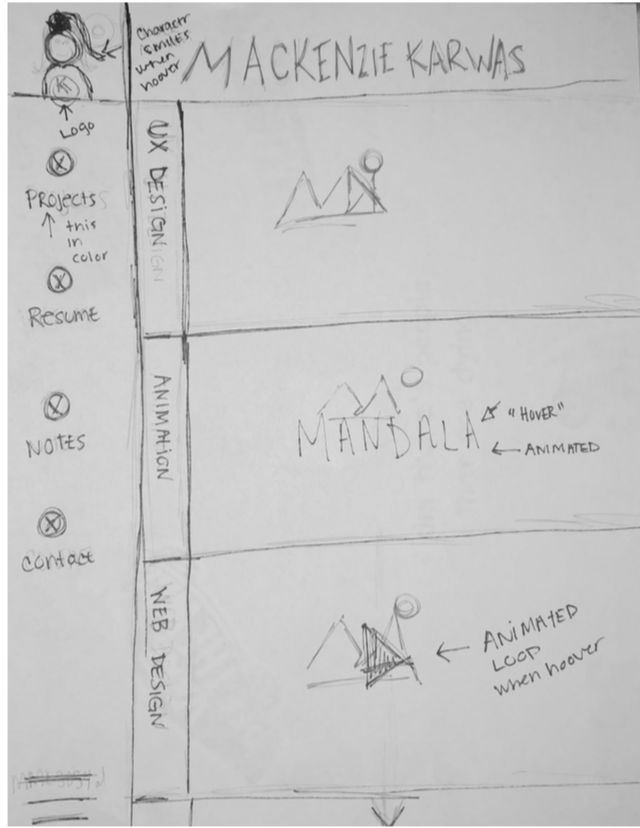 Character
ismiles
when
hoover
MACKENZIE KARWAS
K
Logo
PROJECTS
this
in
color
Resume
NOTES
contact
UX DESIGN
ANIMATION
MANDALA
"HOVER"
ANIMATED
WEB DESIGN
ANIMATED
LOOP
when hoover